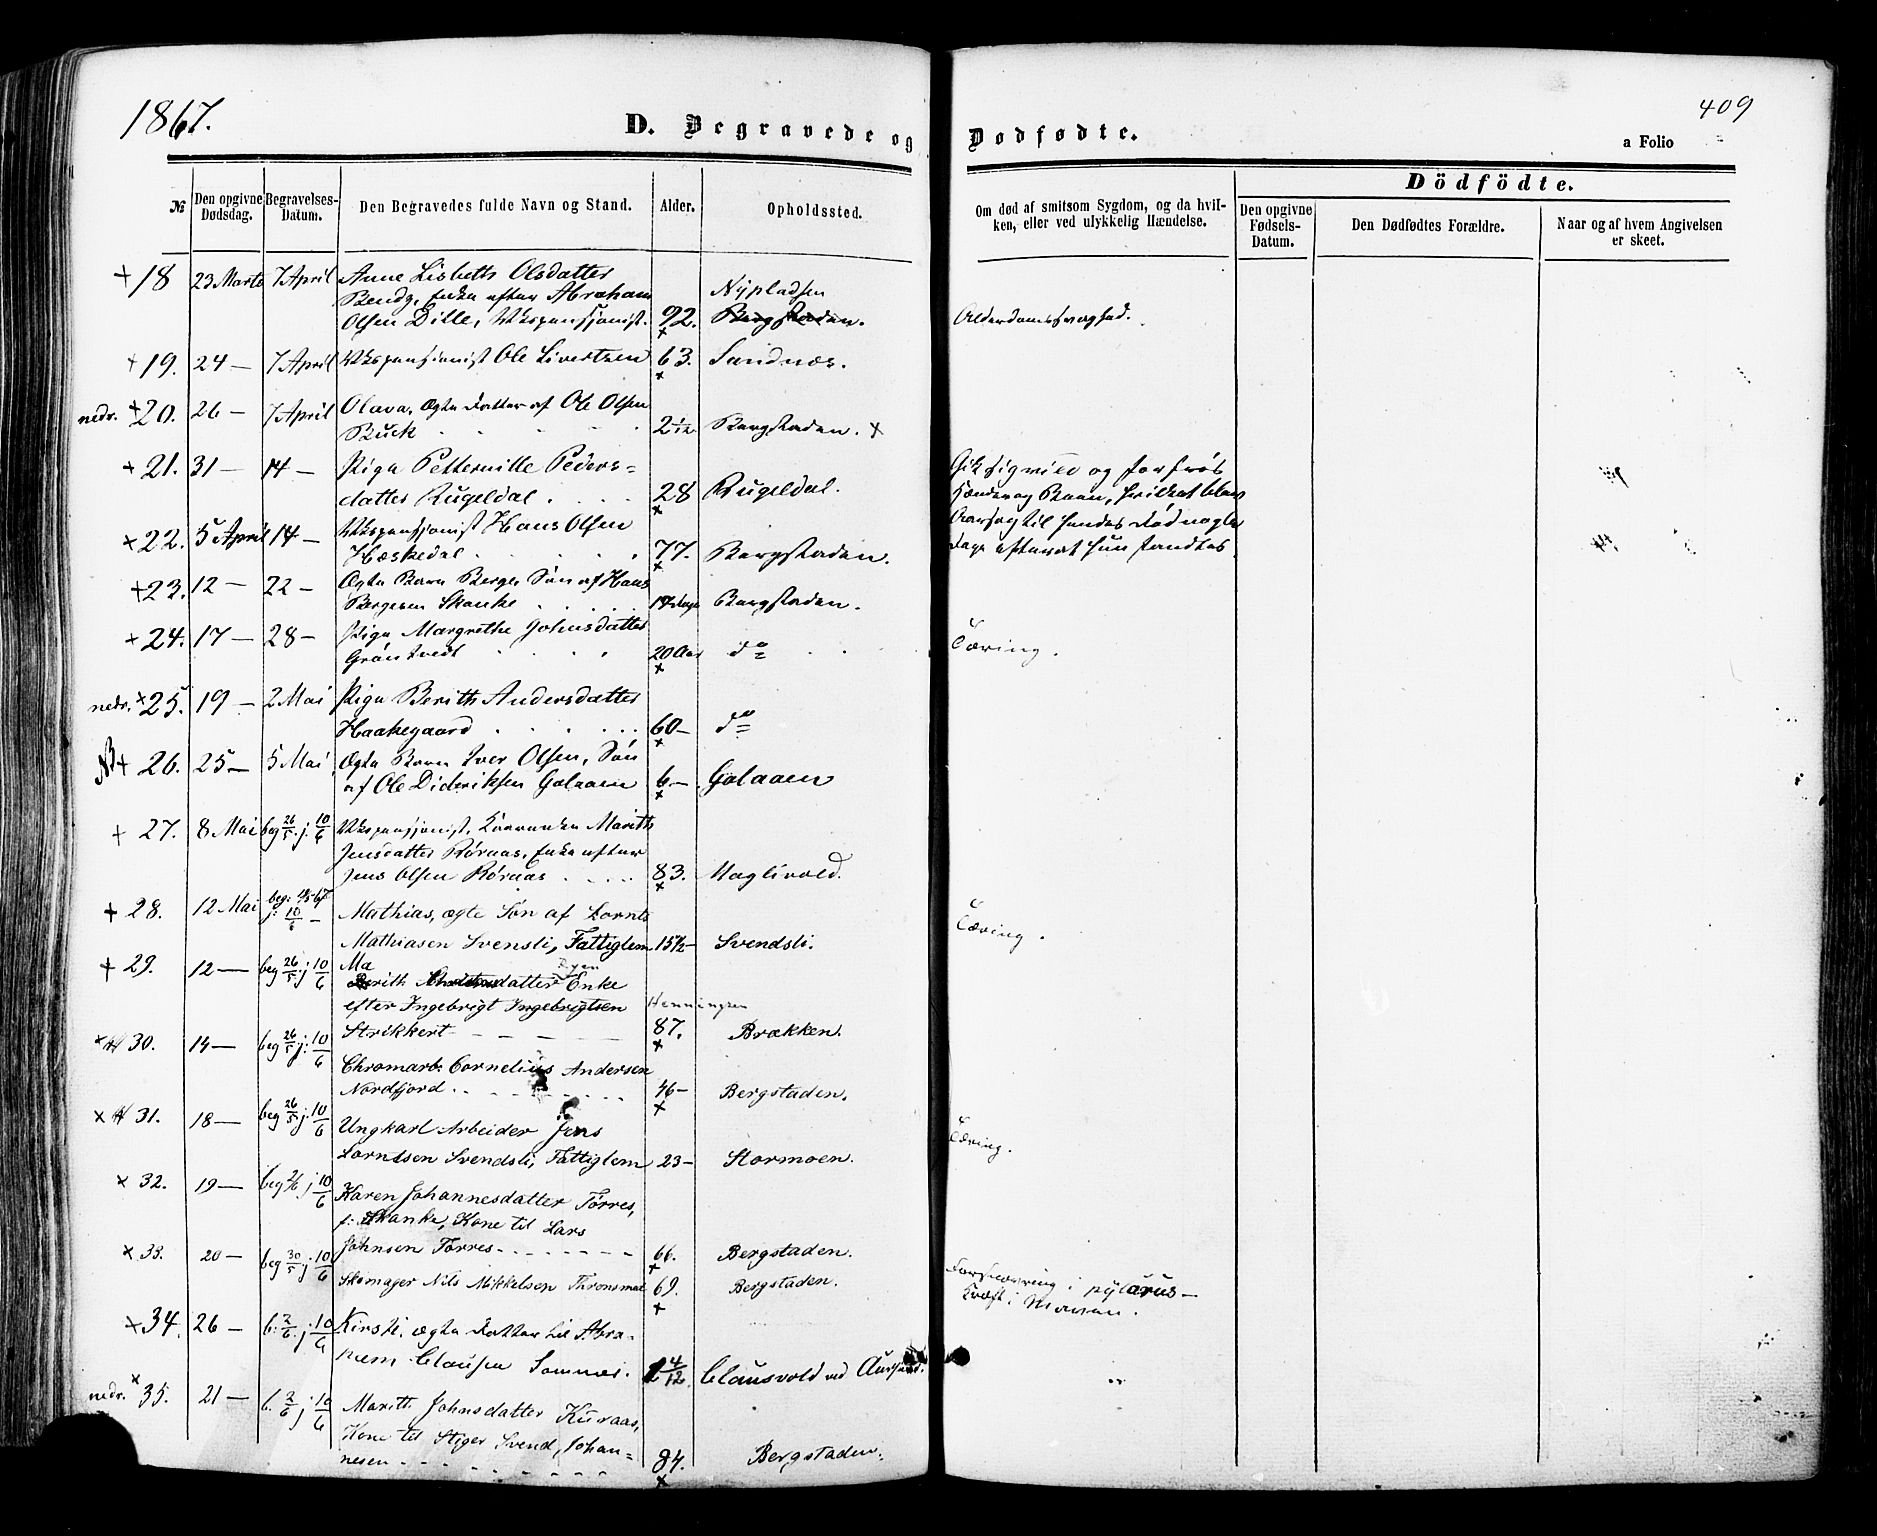 1867.
409
D. Begravede og Dødfødte.
a Folio
№
Den opgivne Dødsdag.
Begravelses-Datum.
Den Begravedes fulde Navn og Stand.
Alder.
Opholdssted.
Om død af smitsom Sygdom, og da hvil-
ken, eller ved ulykkelig Hændelse.
Dödfödte.
Den opgivne Fødsels-Datum.
Den Dødfødtes Forældre.
Naar og af hvem Angivelsen er skeet.
+ 18 23 Marts 7 April Anne Lisbeth Olsdatter
Bendz, Enke efter Abraham Nypladsen
Olsen Dille, Vkspensjonist. 92. Bergstaden. Alderdomssvaghed.
+ 19. 24 — 7 April Vkspensionist Ole Sivertsen 63. Sandnæs.
nedr. + 20. 26 — 7 April Olava, Ægte Datter af Ole Olsen
Buck 2 1/12 Bergstaden. x
+ 21. 31 — 14 — Pige Petternille Peders-
datter Rugeldal. 28 Rugeldal.
Gik sig vild og forfrøs
Hænder og Been, hvilket blev
Aarsag til hendes Død nogle
Dage efterat hun fandtes.
+ 22. 5 April 14 — Vkspensjonist Hans Olsen
Hæskedal 77. Bergstaden.
+ 23. 12 — 22 — Ægte Barn Berger Søn af Hans
Bergersen Skanke 14 Dage Bergstaden.
+ 24. 17 — 28 — Pige Margrethe Johnsdatter
Gröntvedt 20 Aar do Tæring.
nedr. x 25. 19 — 2 Mai Pige Berith Andersdatter
Haakegaard 60 — do
NB + 26. 25 — 5 Mai Ægte Barn Iver Olsen, Søn
af Ole Dideriksen Galaaen 6 — Galaaen
+ 27. 8 Mai beg 26/5. j. 10/6 Vkspensjonist, Marith
Jensdatter Røraas, Enke efter
Jens Olsen Røraas 83. Haglivold.
+ 28. 12 Mai j: 10/6 — Mathias, ægte Søn af Lornts
Mathiasen Svensli, Fattiglem 15 — Svendsli. Tæring.
+ 29. 12 — beg 26/5 j 10/6 Ma
rith datter Enke
efter Ingebrigt Ingebrigtsen Henningsen
Strikkert 87. Brækken.
x 30. 14 — beg 26/5 j: 10/6
Chromarb. Cornelius Andersen
Nordfjord. 46 — Bergstaden.
x 31. 18 — beg 26/5 j: 10/6
Ungkarl Arbeider Jens
Lorntsen Svendsli, Fattiglem 23 — Stormoen. Tæring.
x 32. 19 — beg 2/6 j 10/6 Karen Johannesdatter Törres,
f: Skanke, Kone til Lars
Johnsen Törres 66. Bergstaden.
x 33. 20 — beg 30/5 j 10/6
Skomager Nils Mikkelsen 69. Bergstaden.
i pylorus —
Kræft i Maven.
x 34. 26 — b: 2/6. j 10/6 Kirsti, ægte Datter til Abra-
ham Clausen Somnæs. 4/12 Clausvold ved Aursund.
nedr. x 35. 21 — b. 2/6 j 10/6 Marith Johnsdatter Kuraas,
Kone til Stiger Svend Johan-
nesen 84. Bergstaden.